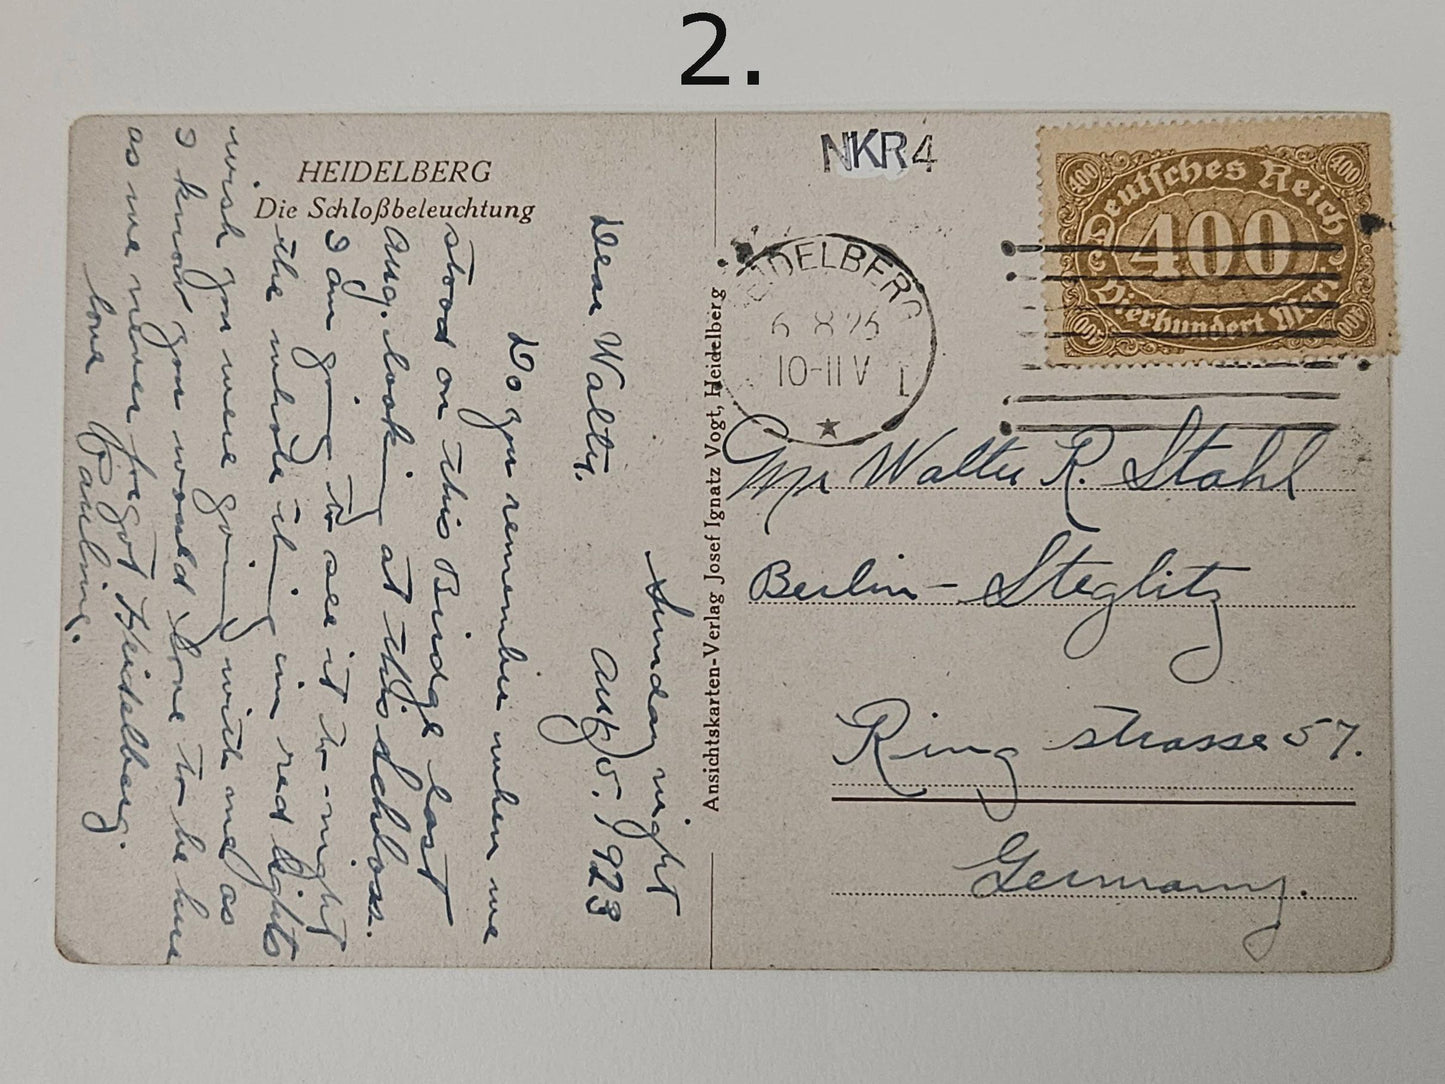 2.
NKR4
HEIDELBERG
Die Schloßbeleuchtung
Deutsches Reich
400
400
400
Vierhundert Mark
400
400
HEIDELBERG
6 8 23
10-11 V
1
Sunday night
Aug 5. 1923
Dear Walty,
Do you remember when we
stood on this Bridge last
Aug. looking at this Schloss.
I am going to see it to-night
the whole thing in red lights
wish you were going with me as
I know you would love to be here
as we never forgot Heidelberg.
love Pauline.
Ansichtskarten-Verlag Josef Ignatz Vogt, Heidelberg
Mr Walter R. Stahl
Berlin-Steglitz
Ring strasse 57.
Germany.